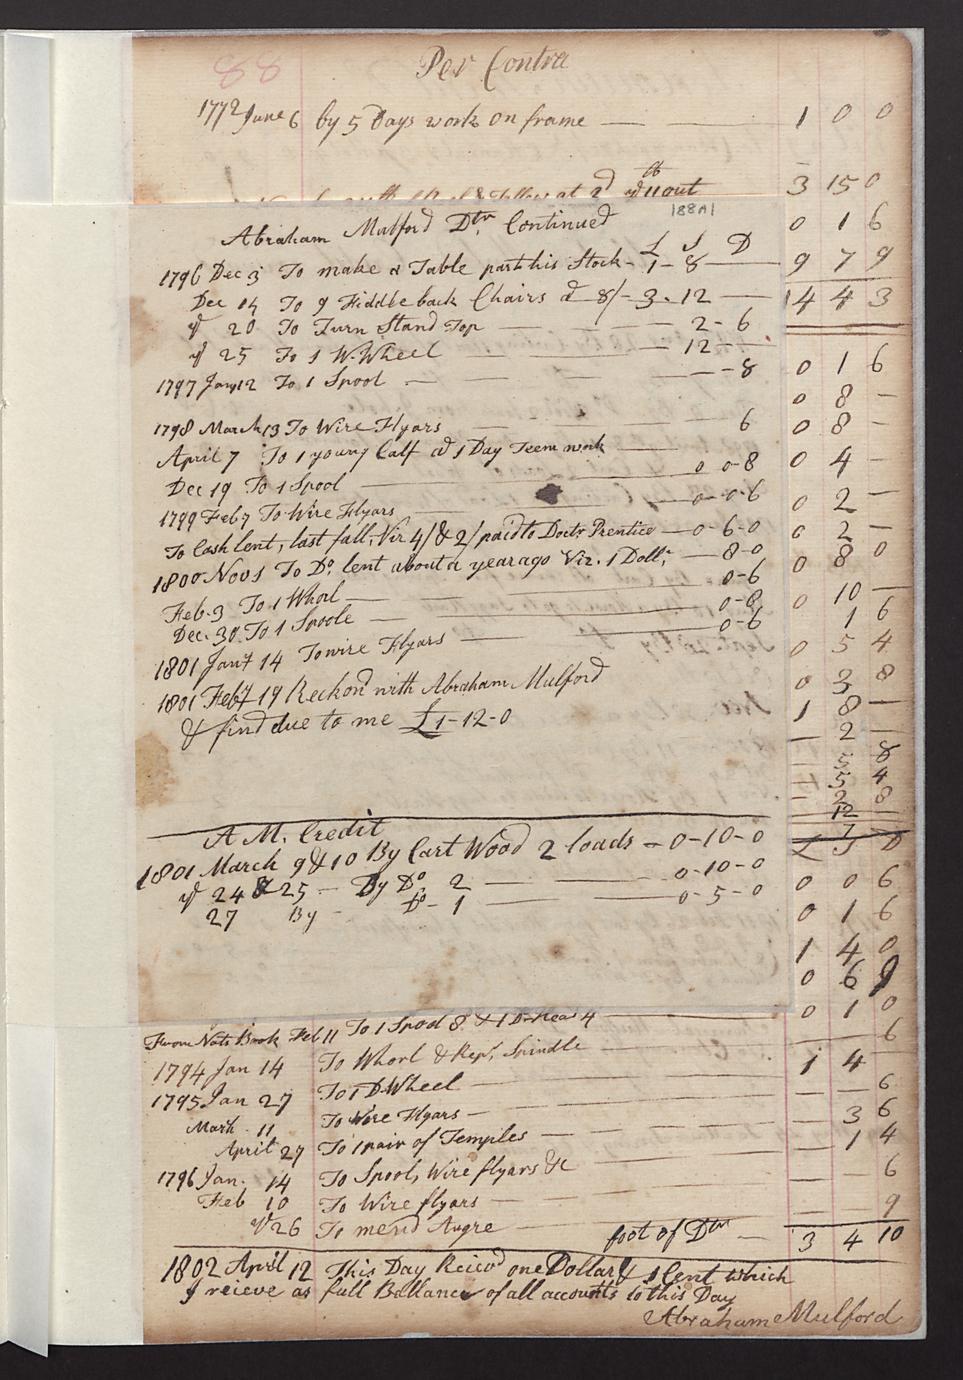 88
Per Contra
1772 June 6 by 5 Days work on frame — 1 0 0
at 2d out 3 15 0
188A1
0 1 6
Abraham Mulford Dtr. Continued
£ S D 9 7 9
1796 Dec 3 To make a Table part his Stock - 1 - 8 —
14 4 3
Dec 14 To 9 Fiddle back Chairs a 8/ - 3 - 12 —
yd 20 To Turn Stand Top — 2 - 6
yd 25 To 1 W. Wheel — 12 —
0 1 6
1797 Jany 12 To 1 Spool — — - 8
0 8 —
1798 March 13 To Wire Flyars 6
0 8 —
April 7 To 1 young Calf & 1 Day Teem work
0 4 —
Dec 19 To 1 Spool — 0 0 - 8
0 2 —
1799 Feby 7 To Wire Flyars 0 - 0 - 6
0 2 —
To Cash lent, last fall, Viz 4/ & 2/ paid to Doctr Prentice — 0 - 6 - 0
0 8 0
1800 Nov 5 To Do. lent about a year ago Viz. 1 Dollr. — 8 - 0
0 10 —
Feb. 3 To 1 Whorl — 0 - 6
1 6
Dec. 30 To 1 Spoole — 0 - 8
0 5 4
1801 Jany 14 To wire Flyars — 0 - 6
0 3 8
1801 Feby 19 Reckond with Abraham Mulford
1 8 —
& find due to me £1 - 12 - 0
— 2 —
— 5 8
— 5 4
— 2 8
— 12
7
£ S D
A M. Credit
1801 March 9 & 10 By Cart Wood 2 loads — 0 - 10 - 0
0 0 6
yd 24 & 25 — By Do. 2 — 0 - 10 - 0
0 1 6
27 By — Do - 1 — 0 - 5 - 0
1 4 0
0 6 9
0 1 0
From Note Book Feb 11 To 1 Spool 8 & 1 4
6
1794 Jan 14 To Whorl & Repr. Spindle —
1 4
1795 Jan 27 To 1 D. Wheel —
6
Mark. 11 To Wire Flyars —
3 6
April 27 To 1 pair of Temples —
1 4
1796 Jan. 14 To Spool, Wire flyars &c
6
Feb 10 To Wire flyars —
9
yd 26 To mend Augre — foot of Dtr — 3 4 10
1802 April 12 This Day Reicvd one Dollar & 1 Cent which
I reieve as full Ballance of all accounts to this Day
Abraham Mulford